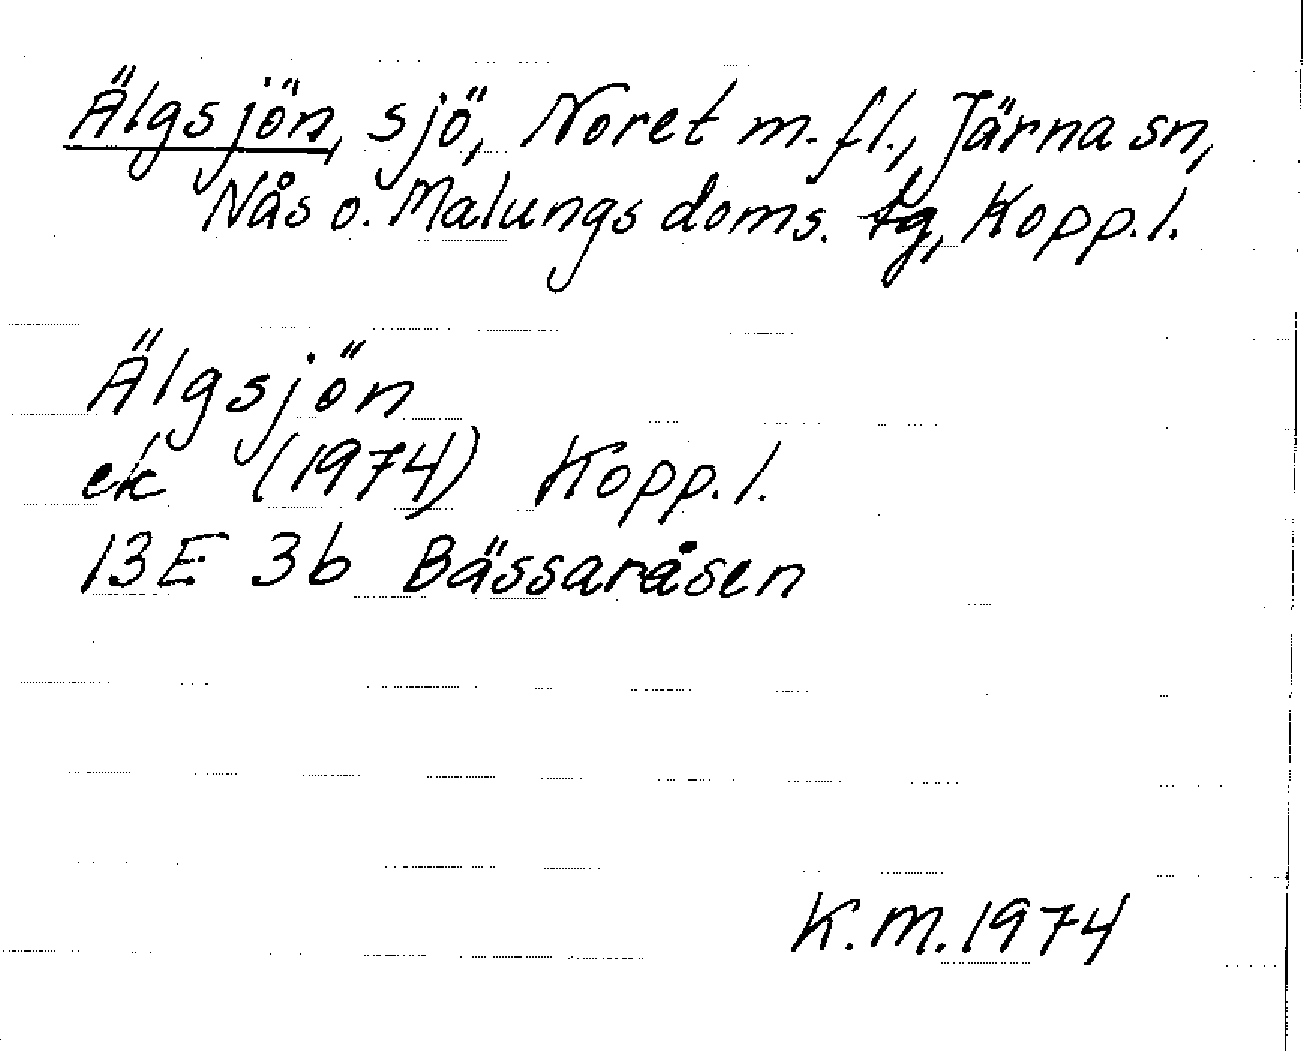 Älgsjön, sjö, Noret m.fl., Järna sn,
Nås o. Malungs doms. tg, Kopp.l.
Älgsjön
ek (1974) Kopp.l.
13E 3b Bässaråsen
K.M.1974